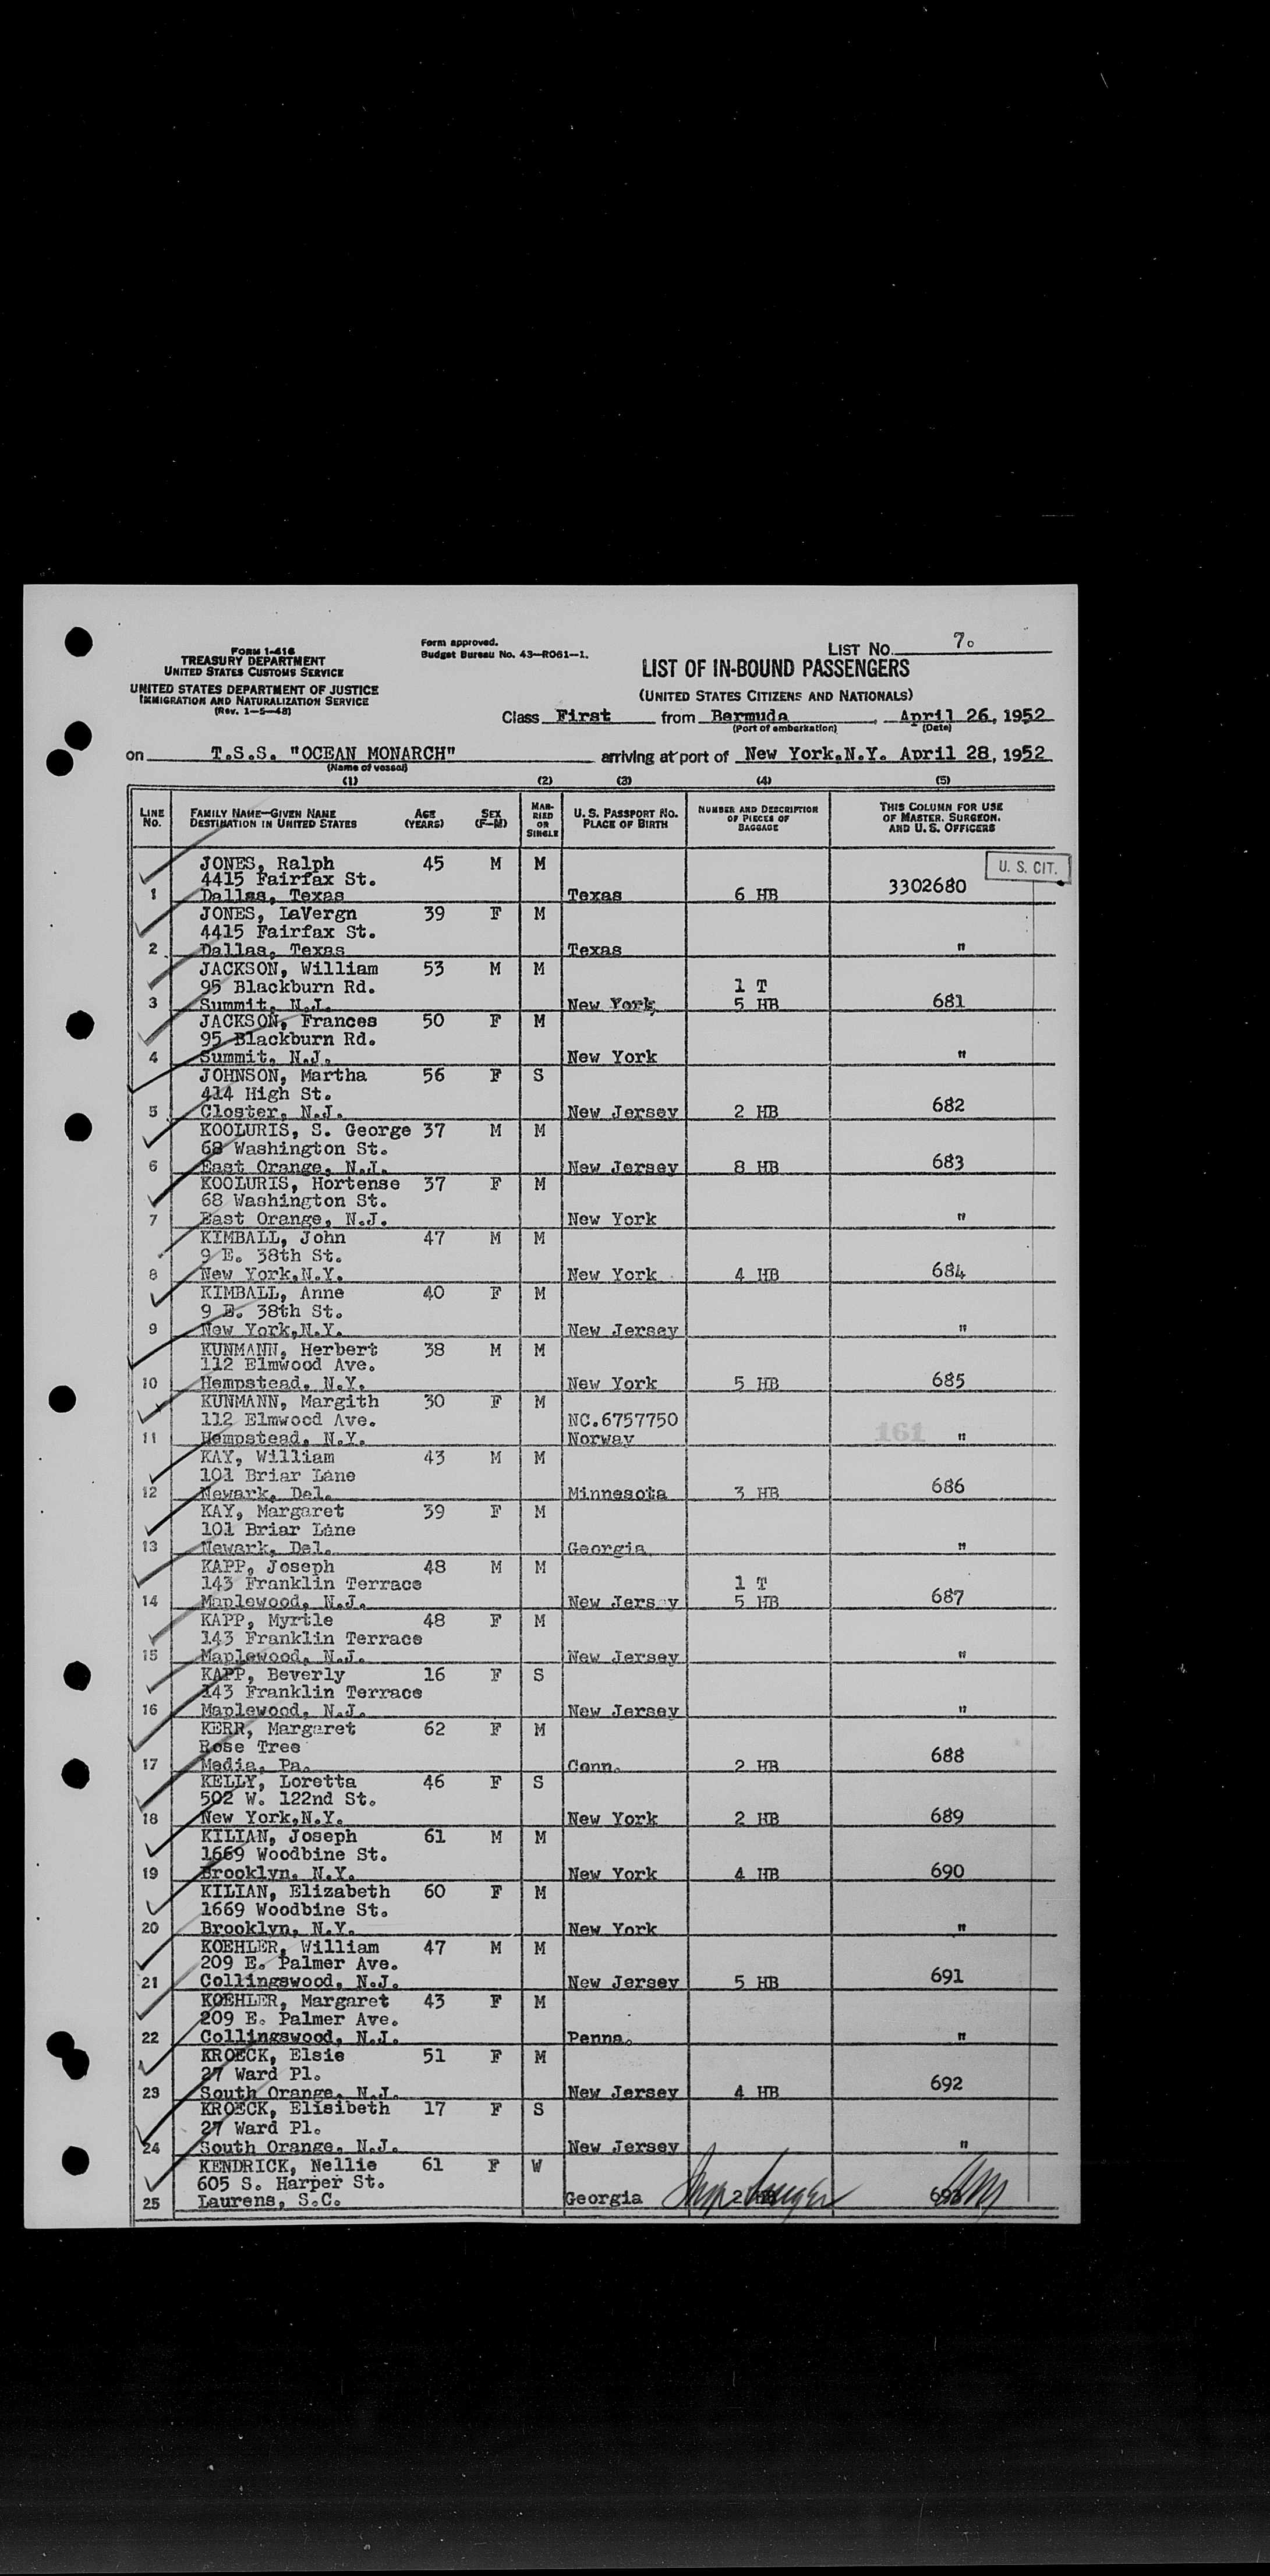 FORM I-416
TREASURY DEPARTMENT
UNITED STATES CUSTOMS SERVICE
UNITED STATES DEPARTMENT OF JUSTICE
IMMIGRATION AND NATURALIZATION SERVICE
(Rev. 1-5-48)
Form approved.
Budget Bureau No. 43-R061-1.
LIST No. 7.
LIST OF IN-BOUND PASSENGERS
(UNITED STATES CITIZENS AND NATIONALS)
Class First from Bermuda, April 26, 1952
(Port of embarkation) (Date)
on T.S.S. "OCEAN MONARCH" arriving at port of New York.N.Y. April 28, 1952
(Name of vessel)
(1) (2) (3) (4) (5)
LINE No. FAMILY NAME—GIVEN NAME DESTINATION IN UNITED STATES AGE (YEARS) SEX (F—M) MARRIED OR SINGLE U. S. PASSPORT NO. PLACE OF BIRTH NUMBER AND DESCRIPTION OF PIECES OF BAGGAGE THIS COLUMN FOR USE OF MASTER, SURGEON, AND U. S. OFFICERS
U. S. CIT.
JONES, Ralph 45 M M
4415 Fairfax St. 3302680
1 Dallas, Texas Texas 6 HB
JONES, LaVergn 39 F M
4415 Fairfax St.
2 Dallas, Texas Texas "
JACKSON, William 53 M M
95 Blackburn Rd. 1 T
3 Summit, N.J. New York 5 HB 681
JACKSON, Frances 50 F M
95 Blackburn Rd.
4 Summit, N.J. New York "
JOHNSON, Martha 56 F S
414 High St.
5 Closter, N.J. New Jersey 2 HB 682
KOOLURIS, S. George 37 M M
68 Washington St.
6 East Orange, N.J. New Jersey 8 HB 683
KOOLURIS, Hortense 37 F M
68 Washington St.
7 East Orange, N.J. New York "
KIMBALL, John 47 M M
9 E. 38th St.
8 New York,N.Y. New York 4 HB 684
KIMBALL, Anne 40 F M
9 E. 38th St.
9 New York,N.Y. New Jersey "
KUNMANN, Herbert 38 M M
112 Elmwood Ave.
10 Hempstead, N.Y. New York 5 HB 685
KUNMANN, Margith 30 F M
112 Elmwood Ave. NC.6757750
11 Hempstead, N.Y. Norway 161 "
KAY, William 43 M M
101 Briar Lane
12 Newark, Del. Minnesota 3 HB 686
KAY, Margaret 39 F M
101 Briar Lane
13 Newark, Del. Georgia "
KAPP, Joseph 48 M M
143 Franklin Terrace 1 T
14 Maplewood, N.J. New Jersey 5 HB 687
KAPP, Myrtle 48 F M
143 Franklin Terrace
15 Maplewood, N.J. New Jersey "
KAPP, Beverly 16 F S
143 Franklin Terrace
16 Maplewood, N.J. New Jersey "
KERR, Margaret 62 F M
Rose Tree
17 Media, Pa. Conn. 2 HB 688
KELLY, Loretta 46 F S
502 W. 122nd St.
18 New York,N.Y. New York 2 HB 689
KILIAN, Joseph 61 M M
1669 Woodbine St.
19 Brooklyn, N.Y. New York 4 HB 690
KILIAN, Elizabeth 60 F M
1669 Woodbine St.
20 Brooklyn, N.Y. New York "
KOEHLER, William 47 M M
209 E. Palmer Ave.
21 Collingswood, N.J. New Jersey 5 HB 691
KOEHLER, Margaret 43 F M
209 E. Palmer Ave.
22 Collingswood, N.J. Penna. "
KROECK, Elsie 51 F M
27 Ward Pl.
23 South Orange, N.J. New Jersey 4 HB 692
KROECK, Elisibeth 17 F S
27 Ward Pl.
24 South Orange, N.J. New Jersey "
KENDRICK, Nellie 61 F W
605 S. Harper St.
25 Laurens, S.C. Georgia 2 HB 693